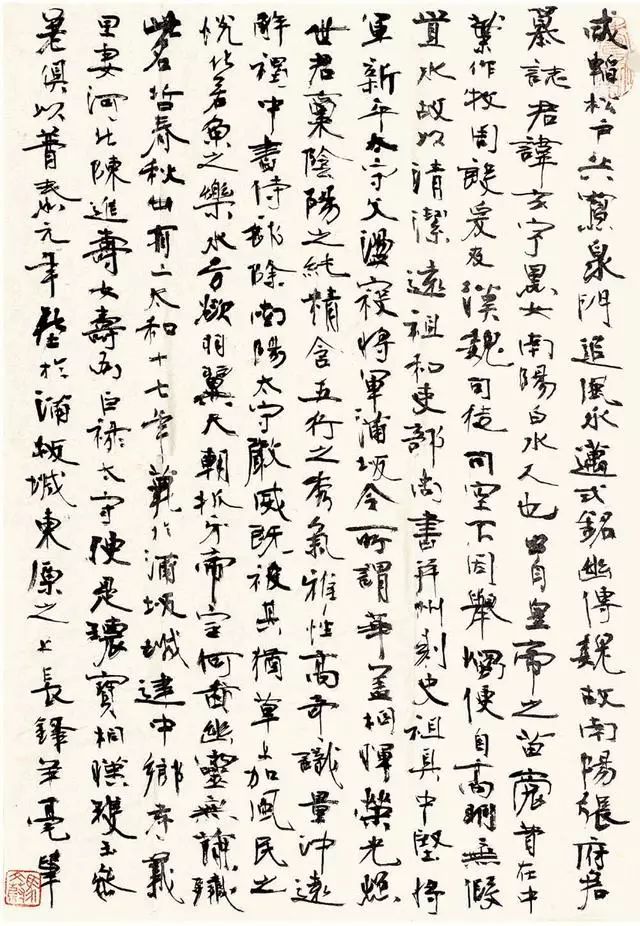 咸韜松戶共寢泉門追風永邁式銘幽傳魏故南陽張府君
墓誌君諱玄字黑女南陽白水人也出自皇帝之苗裔昔在中
葉作牧周殷爰及漢魏司徒司空不因舉燭便自高明無假
置水故以清潔遠祖和吏部尚書并州刺史祖具中堅將
軍新平太守父盪寇將軍蒲坂令所謂華蓋相暉榮光照
世君稟陰陽之純精含五行之秀氣雅性高奇識量沖遠
解褐中書侍郎除南陽太守嚴威既被其猶草上加風民之
悅化若魚之樂水方欲羽翼天朝抓牙帝室何啚幽靈無殲
此名哲春秋卅有二太和十七年薨於蒲坂城建中鄉孝義
里妻河北陳進壽女壽為巨祿太守便是瓌寶相暎瓊玉參
差俱以普泰元年葬於蒲坂城東原之上長鋒羊毫筆